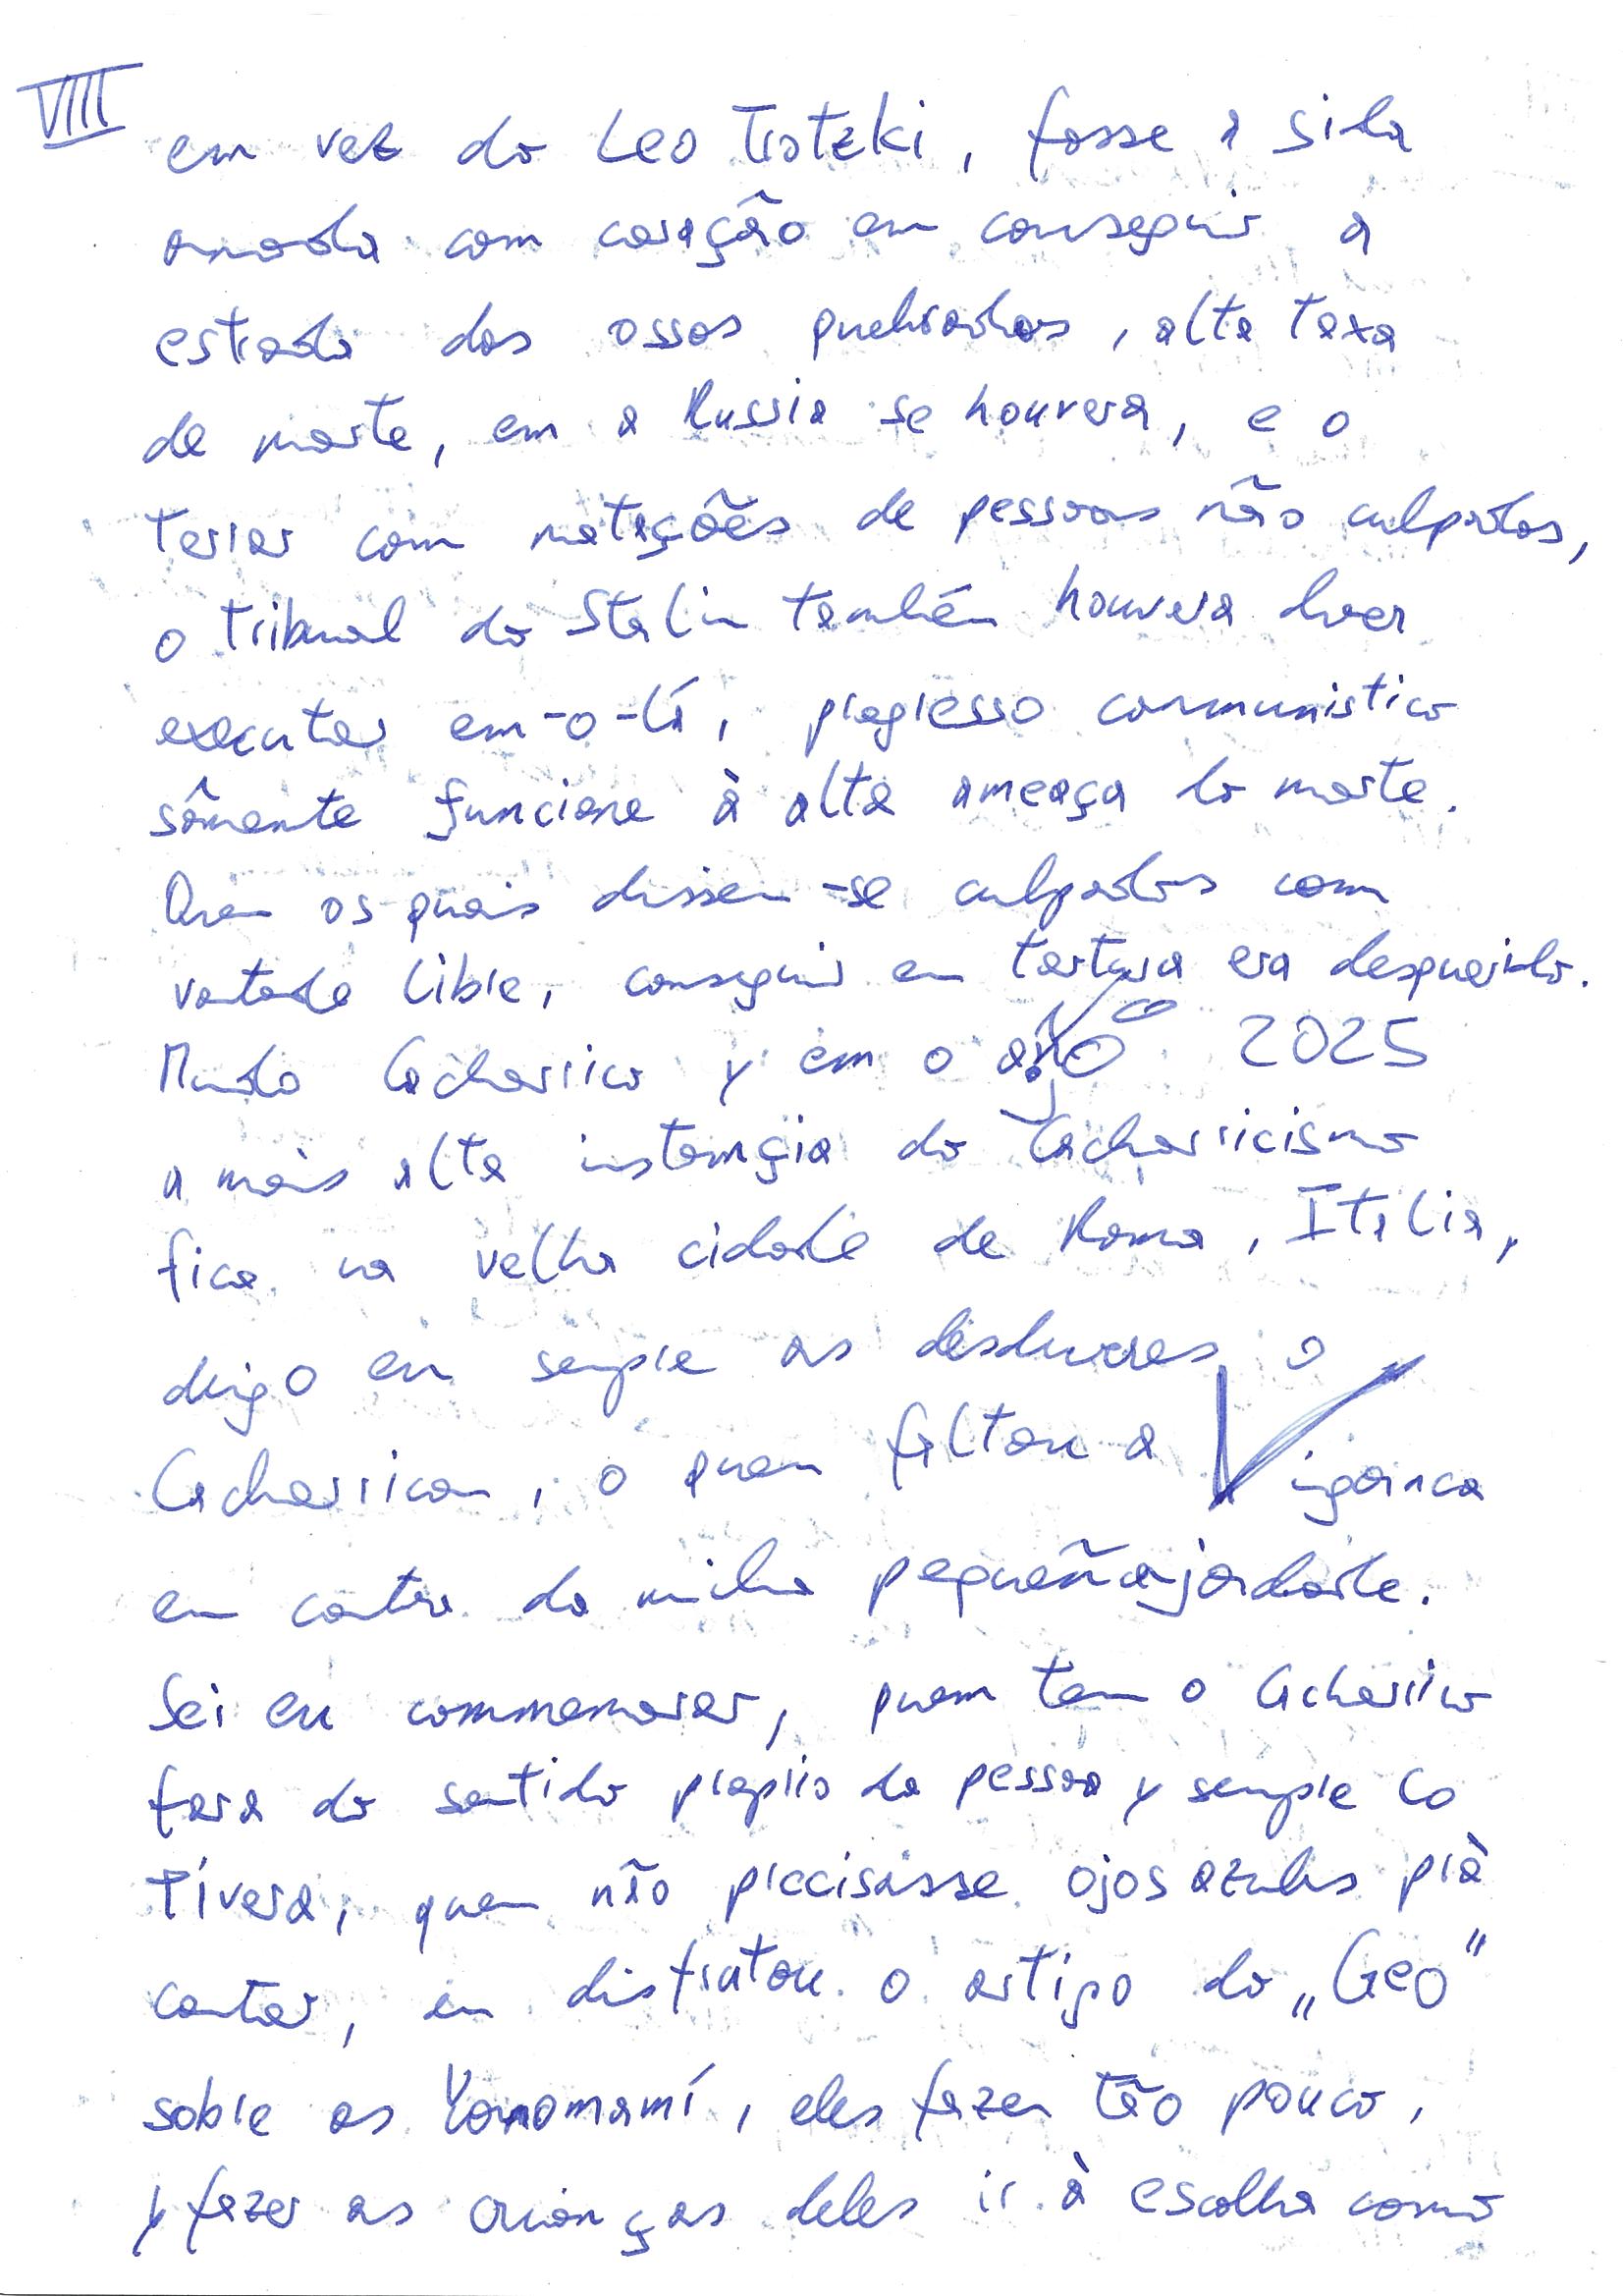 VIII
em vez do Leo Trotzki, fosse a sida
amada com coração em conseguir a
estrada dos ossos puebrados, alta taxa
de morte, em a Russia se houvera, e o
terrer com matações de pessoas não culpados,
o tribunal do Stalin também houvera
executar em-o-lá, progresso communistico
sômente funcione à alta ameaça do morte.
Quem os quais dissem-se culpados com
vontade libre, conseguir em tortura era desquerido.
Mundo Cachorrico y em o año 2025
a mais alta instamçia do Cachorricismo
fica na velha cidade de Roma, Italia,
digo eu sempre as o
Cachorrican, o quem faltou a Vingança
em contra da minha pequeñajordade.
Sei eu commemorar, quem tem o Cachorrico
fora do sentido proprio da pessoa y sempre lo
tívera, quem não preccisasse ojos azules prà
contar, eu disfrutou o artigo do „Geo“
sobre os Yonomamí, eles fazen tão pouco,
y fazer as crianças deles ir à escolha como